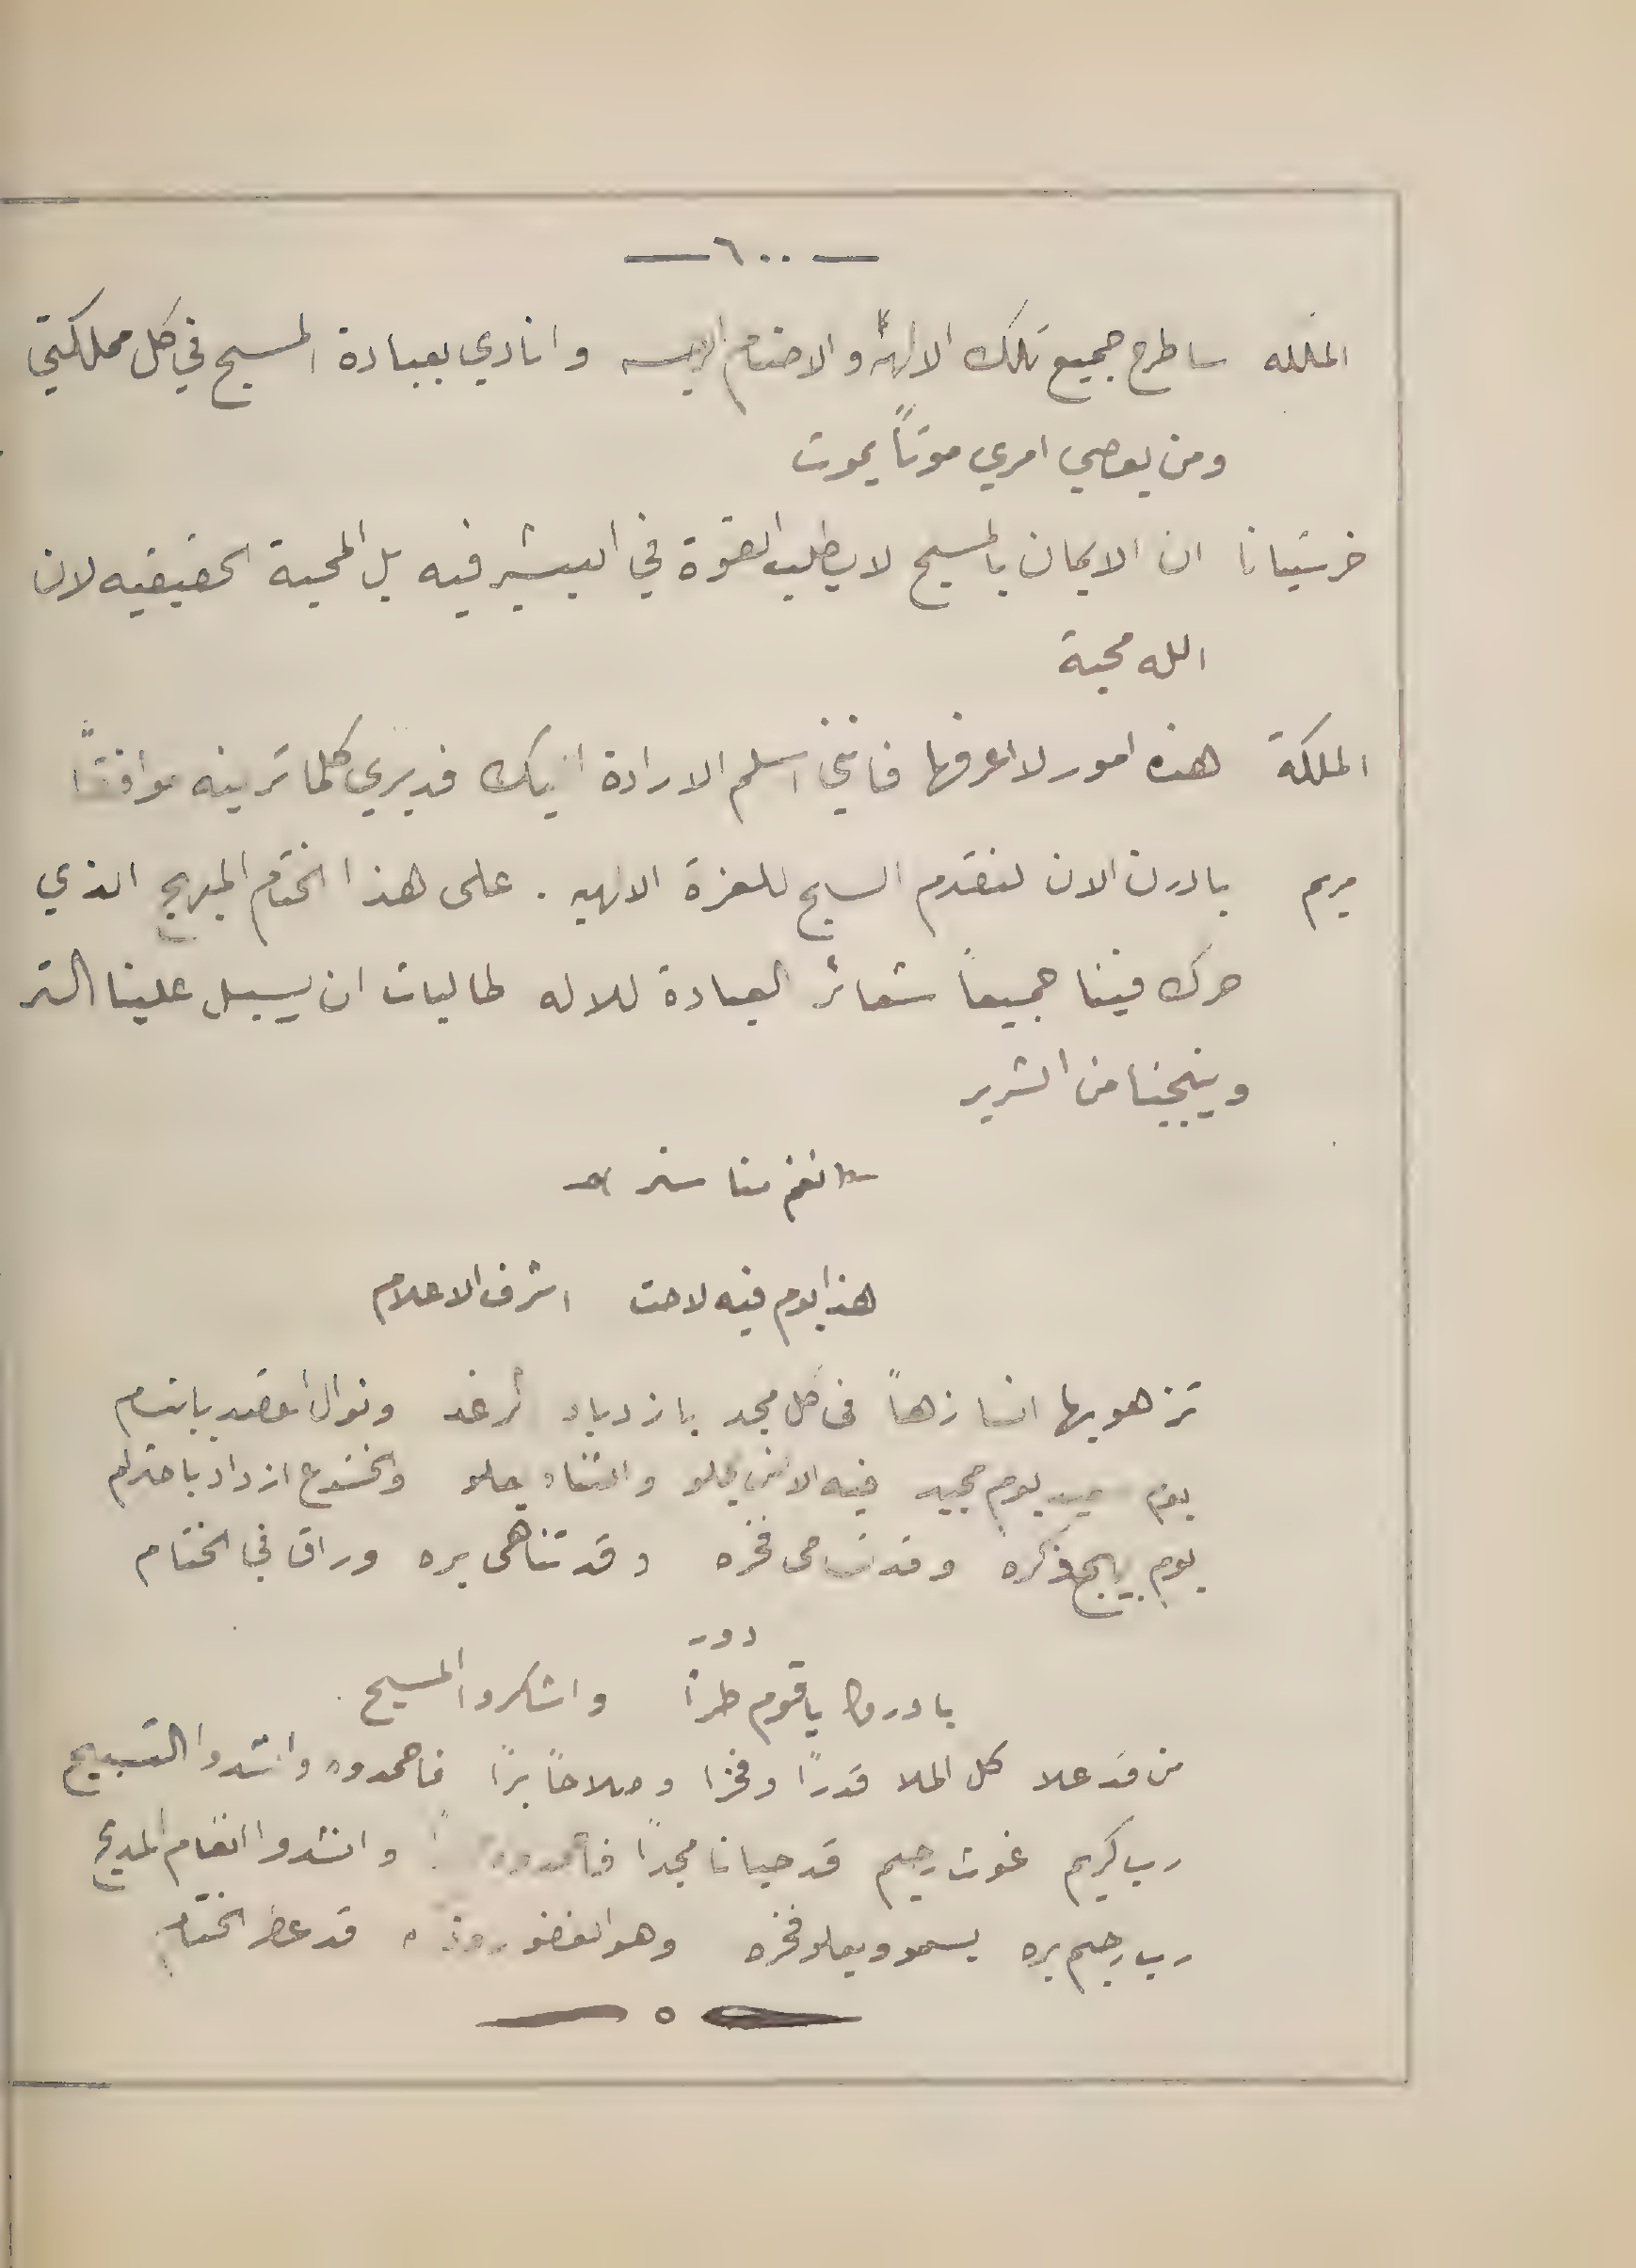 — ٦٠٠ —
الملكه ساطرح جميع تلك الالهة والاصنام وانادي بعبادة المسيح في كل مملكتي
ومن يعصي امري موتاً يموت
خرستيانا ان الايمان بالمسيح لا يطلب القوة في التبشير فيه بل المحبة الحقيقيه لان
الله محبة
الملكة هذه امور لا اعرفها فانني اسلم الارادة اليك فديري كلما ترينه موافقاً
مريم بادرن الان لنقدم السبح للعزة الالهيه . على هذا الختام المبهج الذي
حرك فينا جميعاً شعائر العبادة للاله طالبات ان يسبل علينا الستر
وينجينا من الشرير
نغم
هذا يوم فيه لاحت اشرف الاعلام
تزهو بها انسا زهاً في كل مجد بازدياد رغد ونوال
يوم عيد يوم مجيد فيه الانس يحلو والثناء يحلو والخشوع ازداد باحترام
يوم بهيج ذكره وقد تسامى فخره وقد تناهى بره وراق في الختام
دور
بادروا يا قوم طرا واشكروا المسيح
من قد علا كل الملا قدراً وفخرا وصلاحاً براً فاحمدوه وانشدوا التسبيح
رب كريم غوث رحيم قد حبانا مجداً وانشدوا انغام المديح
رب رحيم بره يسمو ويعلو فخره وهو الغفور قد عطر الختام